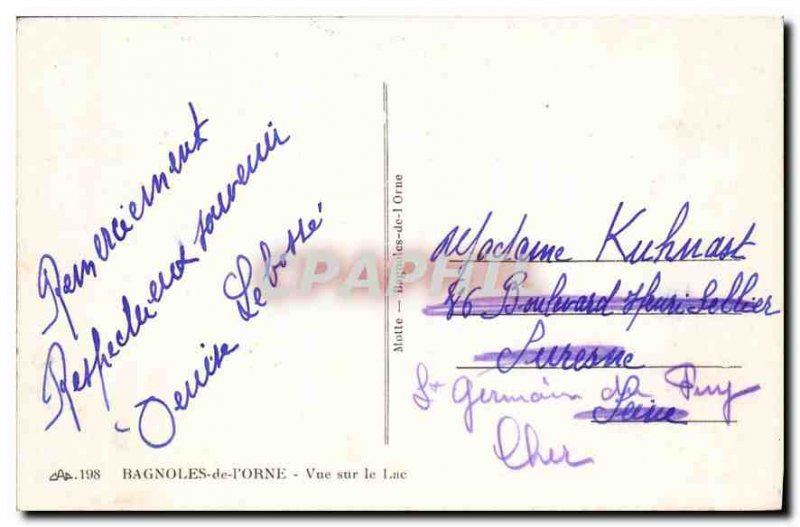 Remerciement
Respectueux souvenir
Denise Lebossé
Motte — Bagnoles-de-l'Orne
Madame Kuhnast
46 Boulevard Henri Sellier
Suresne
St Germain du Puy
Seine
Cher
198 BAGNOLES-de-l'ORNE - Vue sur le Lac